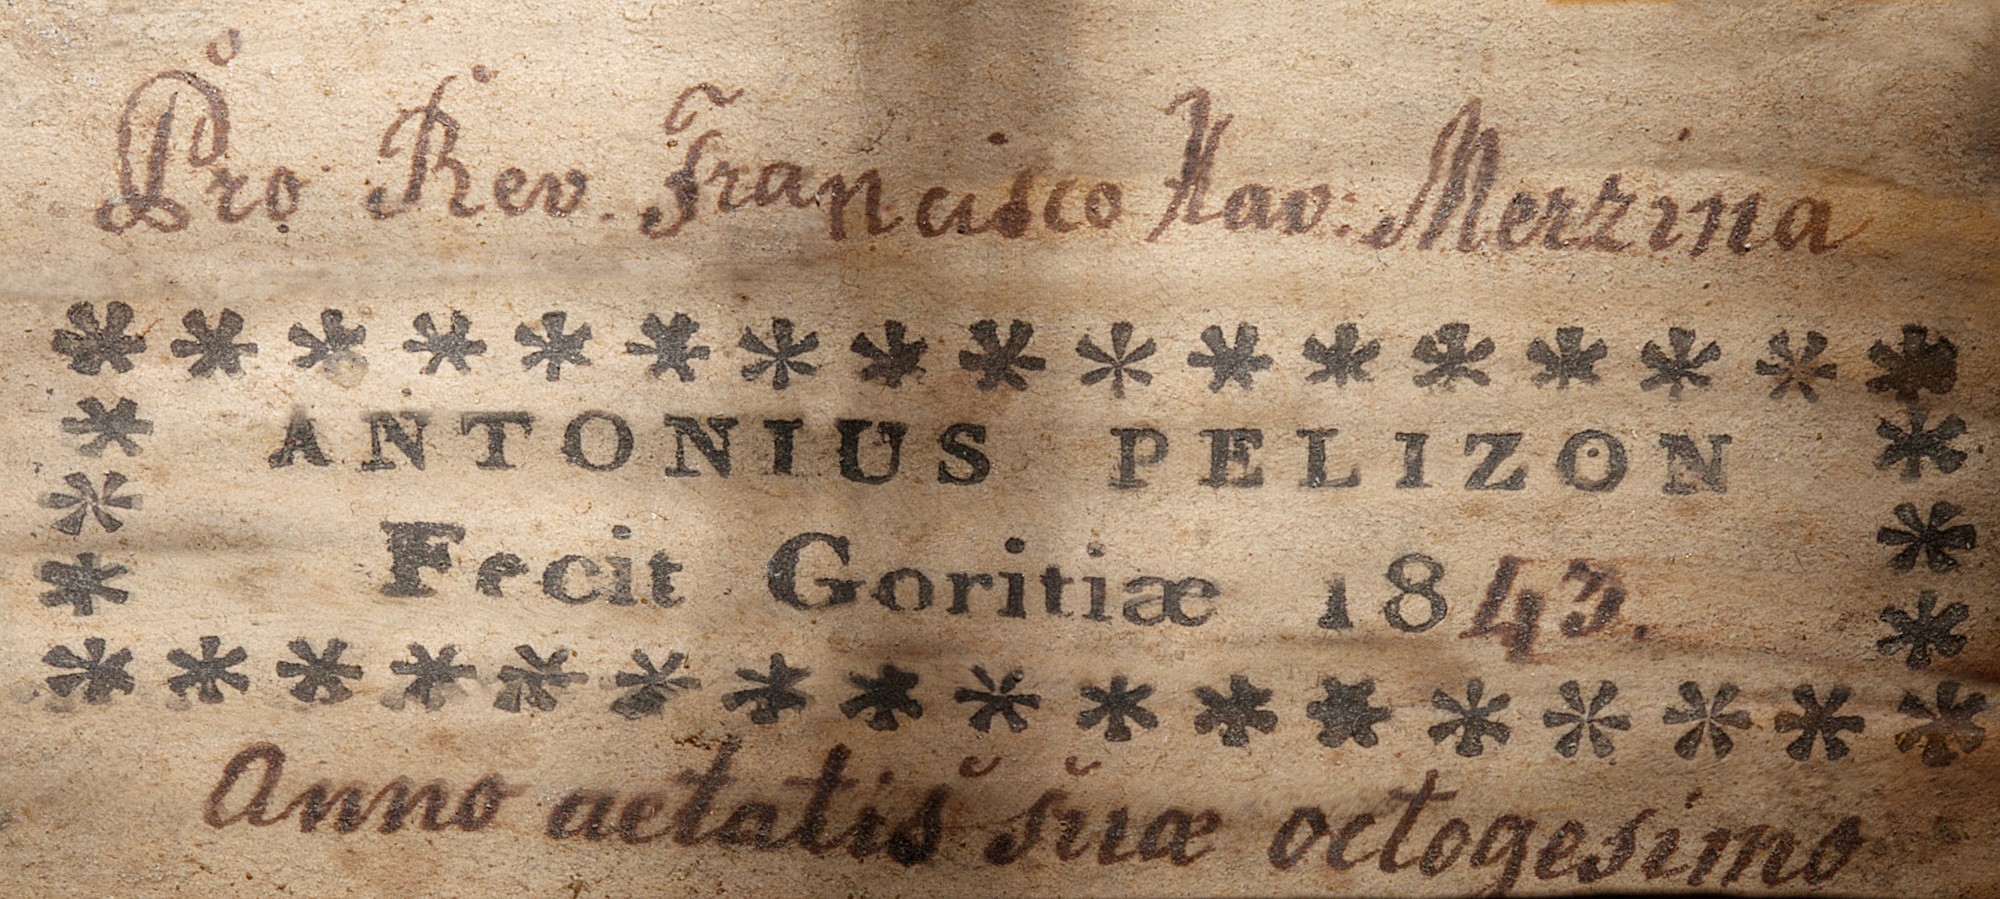 Pro Rev. Francisco Xav: Merzina
ANTONIUS PELIZON
Fecit Goritiæ 1843.
Anno aetatis suæ octogesimo